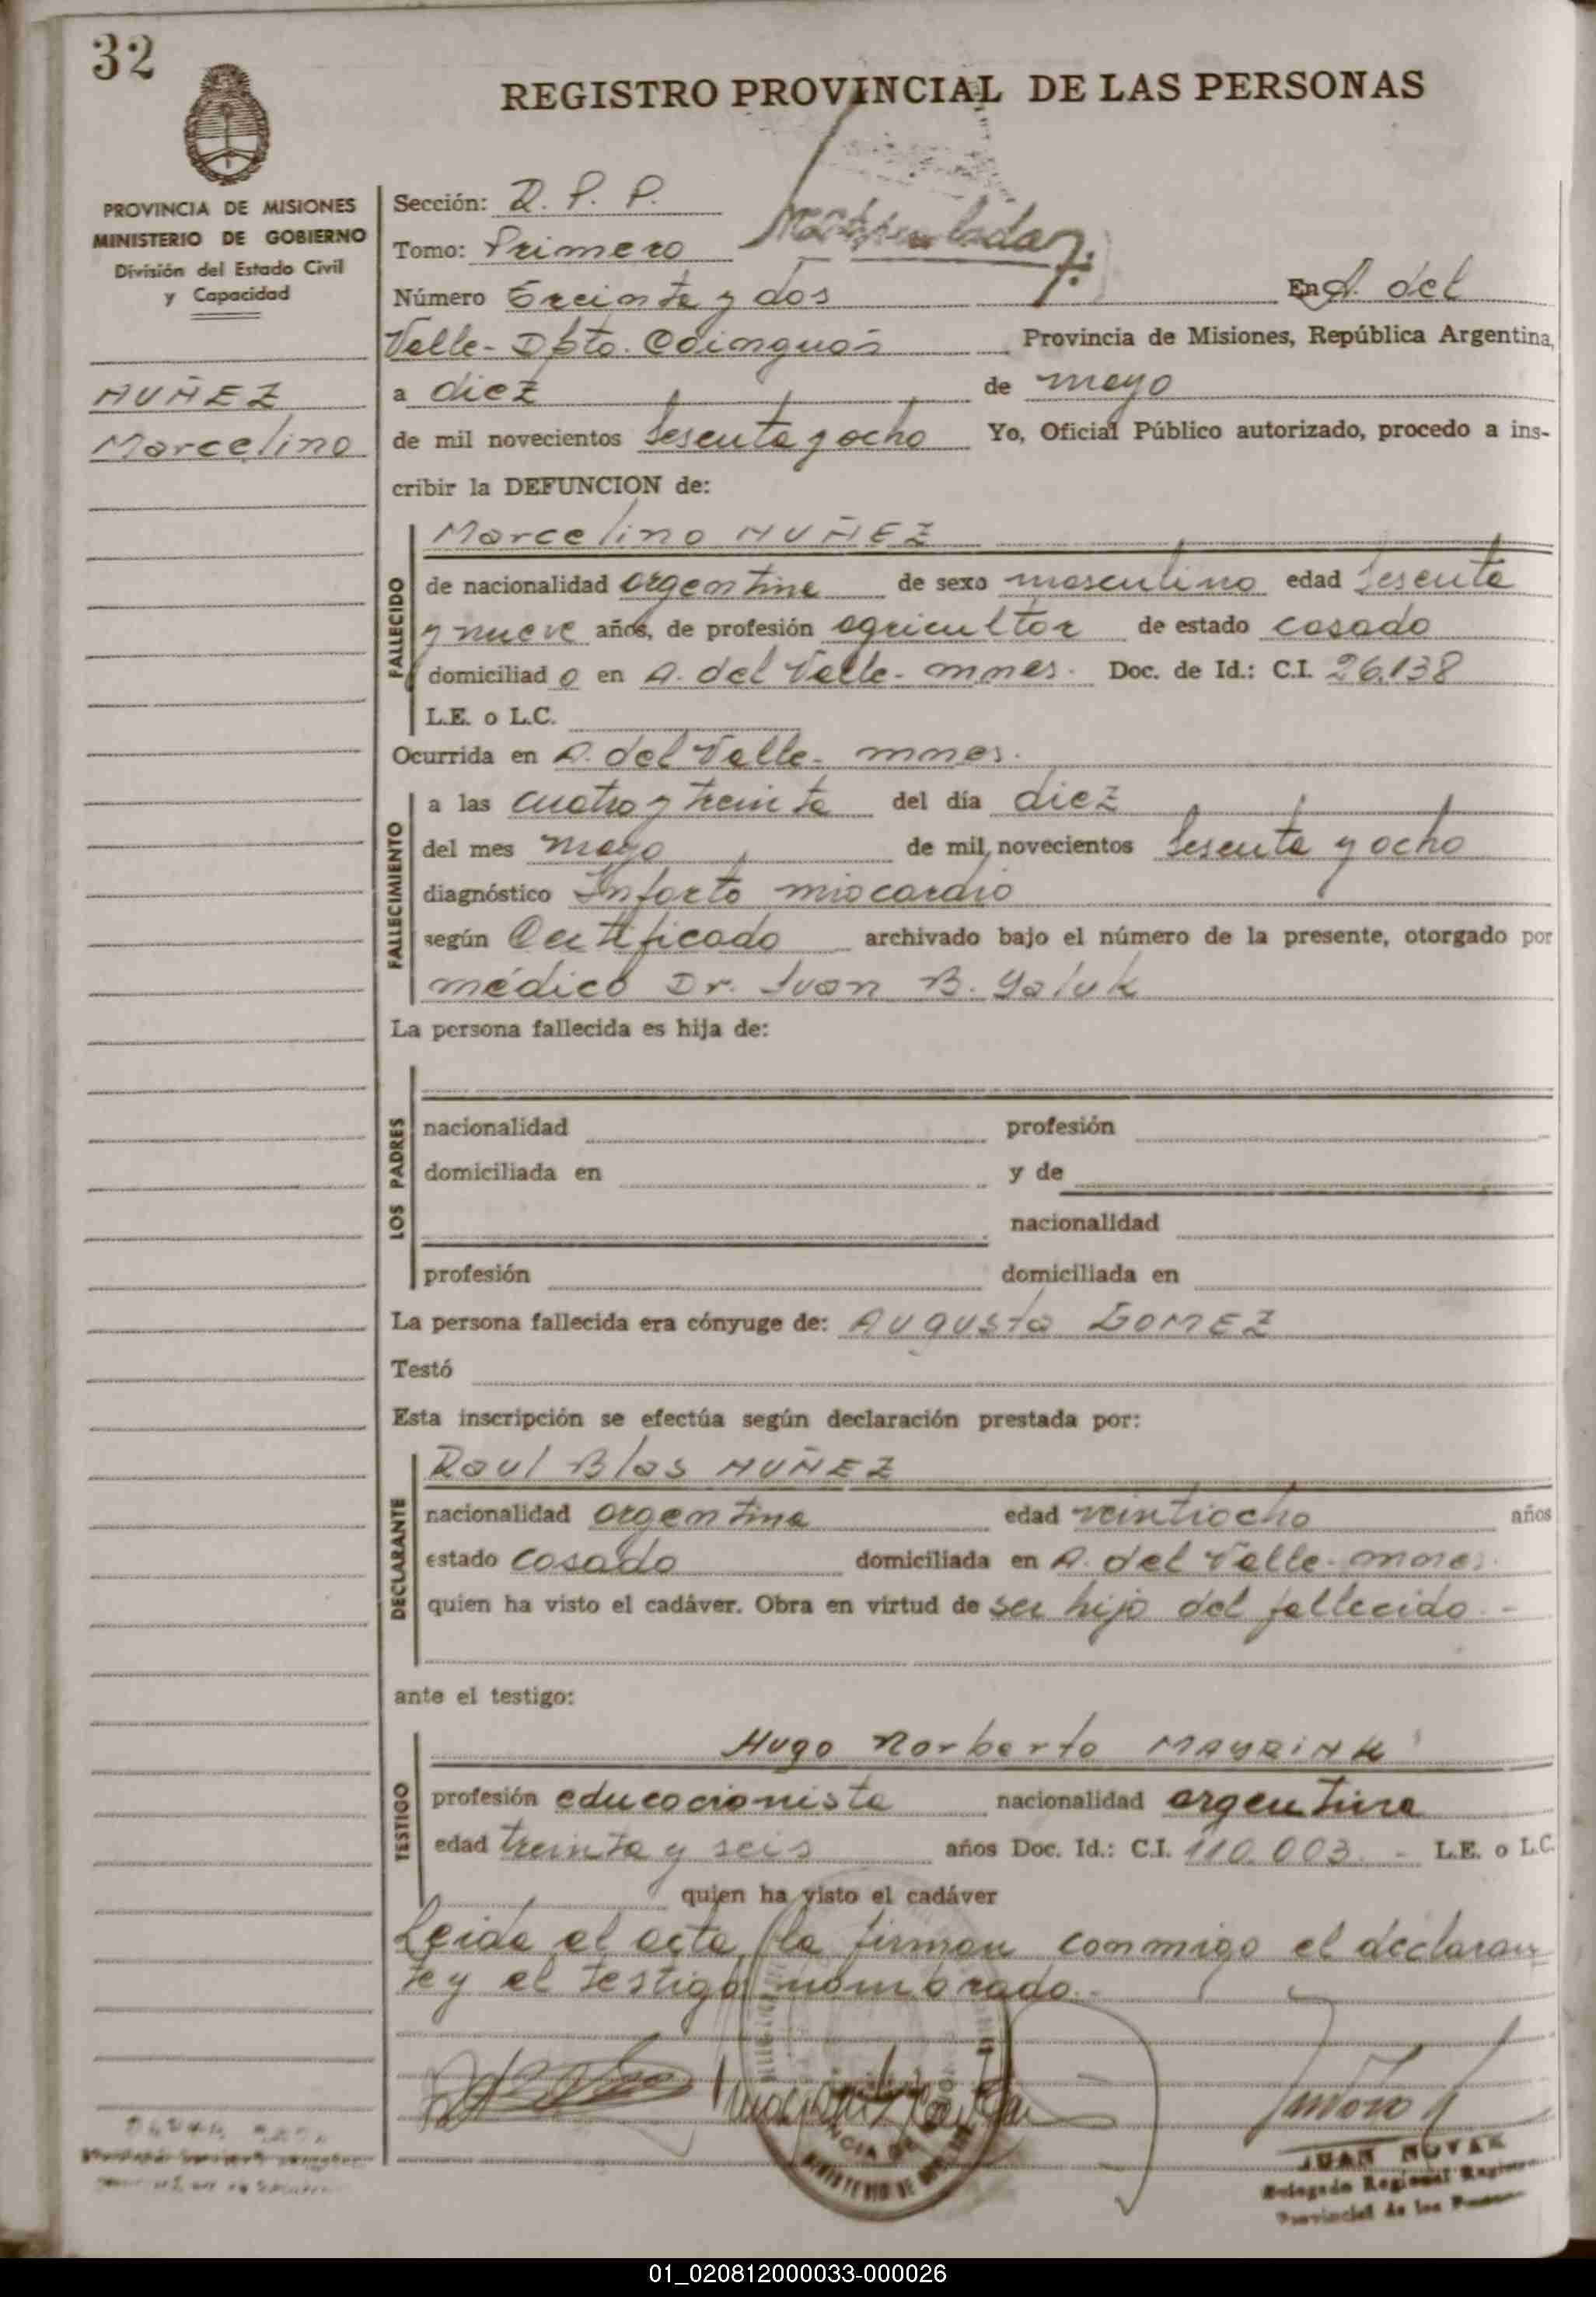 32
REGISTRO PROVINCIAL DE LAS PERSONAS
PROVINCIA DE MISIONES
MINISTERIO DE GOBIERNO
División del Estado Civil
y Capacidad
NUÑEZ
Marcelino
Sección: R. P. P.
Tomo: Primero
Número Treinta y dos En A. del
Valle - Dpto. Cainguás Provincia de Misiones, República Argentina,
a diez de mayo
de mil novecientos sesenta y ocho Yo, Oficial Público autorizado, procedo a ins-
cribir la DEFUNCION de:
FALLECIDO
Marcelino NUÑEZ
de nacionalidad argentina de sexo masculino edad sesenta
y nueve años, de profesión agricultor de estado casado
domiciliad o en A. del Valle - mnes. Doc. de Id.: C.I. 26.138
L.E. o L.C.
Ocurrida en A. del Valle - mnes.
FALLECIMIENTO
a las cuatro y treinta del día diez
del mes mayo de mil novecientos sesenta y ocho
diagnóstico Infarto miocardio
según Certificado archivado bajo el número de la presente, otorgado por
médico Dr. Ivan B. Galuk
La persona fallecida es hija de:
LOS PADRES
nacionalidad profesión
domiciliada en y de
nacionalidad
profesión domiciliada en
La persona fallecida era cónyuge de: Augusta GOMEZ
Testó
Esta inscripción se efectúa según declaración prestada por:
DECLARANTE
Raul Blas NUÑEZ
nacionalidad argentina edad veintiocho años
estado casado domiciliada en A. del Valle - mnes.
quien ha visto el cadáver. Obra en virtud de ser hijo del fallecido.-
ante el testigo:
TESTIGO
Hugo Norberto MAYRINK
profesión educacionista nacionalidad argentina
edad treinta y seis años Doc. Id.: C.I. 110.003.- L.E. o L.C.
quien ha visto el cadáver
Leida el acta, la firman conmigo el declaran
te y el testigo nombrado.-
JUAN NOVAK
Delegado Regional Registro
Provincial de las Personas
01_020812000033-000026